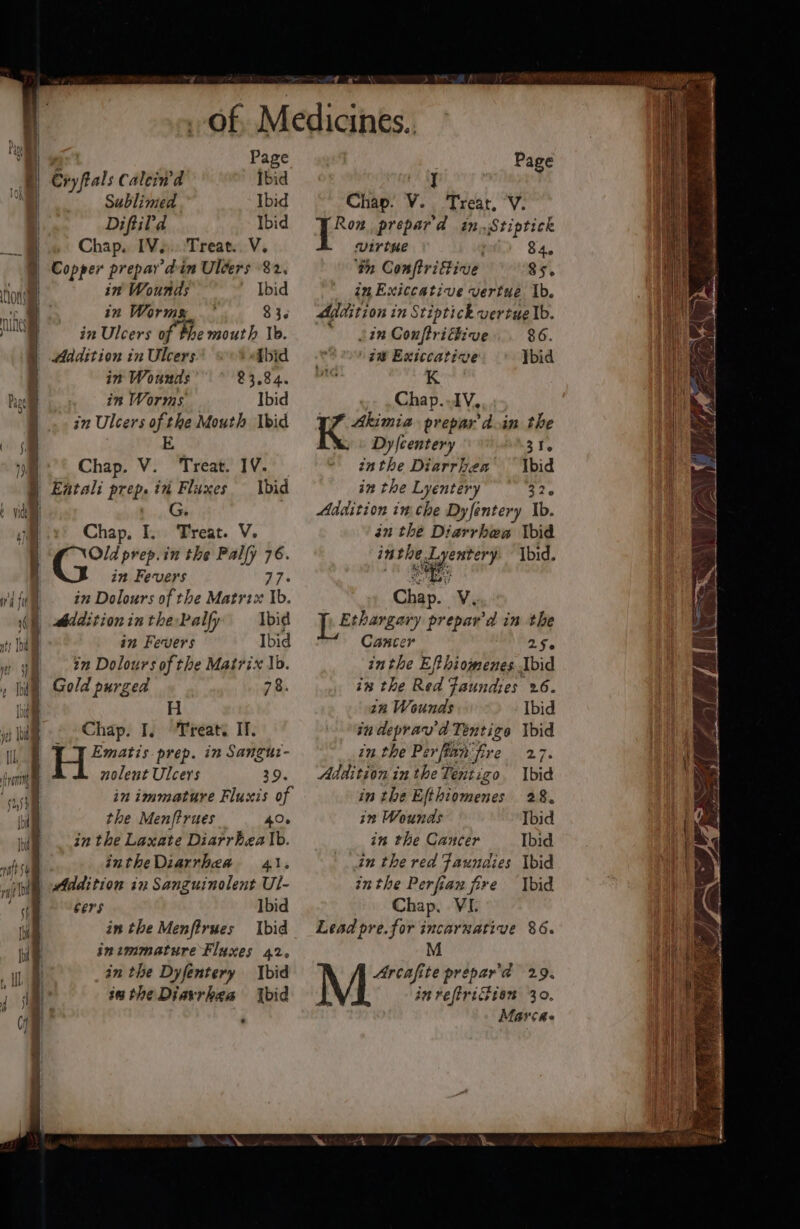 of Medicines.
Page
Cryſtals Calcin'd Ibid
Sublimed Ibid
Diſtil'd Ibid
Chap. IV. Treat. V.
Copper prepar'd in Ulcers 82.
in Wounds Ibid
in Worms 83.
in Ulcers of the mouth Ib.
Addition in Ulcers Ibid
in Wounds 83.84.
in Worms Ibid
in Ulcers of the Mouth Ibid
E
Chap. V. Treat. IV.
Entali prep. in Fluxes Ibid
G.
Chap. I. Treat. V.
GOld prep. in the Palſy 76.
in Fevers 77.
in Dolours of the Matrix Ib.
Addition in the Palſy Ibid
in Fevers Ibid
in Dolours of the Matrix Ib.
Gold purged 78.
H
Chap. I. Treat. II.
HEmatis prep. in Sangui-
nolent Ulcers 39.
in immature Fluxis of
the Menſtrues 40.
in the Laxate Diarrhea Ib.
in the Diarrhæa 41.
Addition in Sanguinolent Ul-
cers Ibid
in the Menſtrues Ibid
in immature Fluxes 42.
in the Dyſentery Ibid
in the Diarrhæa Ibid
Page
I
Chap. V. Treat. V.
IRon prepar'd in Stiptick
virtue 84.
in Conſtrictive 85.
in Exiccative vertue Ib.
Addition in Stiptick vertue Ib.
in Conſtrictive 86.
in Exiccative Ibid
K
Chap. IV.
KAkimia prepar'd in the
Dyſcentery 31.
in the Diarrhea Ibid
in the Lyentery 32.
Addition in che Dyſentery Ib.
in the Diarrhœa Ibid
in the Lyentery Ibid.
L
Chap. V.
LEthargary prepar'd in the
Cancer 25.
in the Eſthiomenes Ibid
in the Red Jaundies 26.
in Wounds Ibid
in deprav'd Tentigo Ibid
in the Perſian fire 27.
Addition in the Tentigo Ibid
in the Eſthiomenes 28.
in Wounds Ibid
in the Cancer Ibid
in the red Jaundies Ibid
in the Perſian fire Ibid
Chap. VI.
Lead pre. for incarnative 86.
M
MArcaſite prepar'd 29.
in reſtriction 30.
Marca-